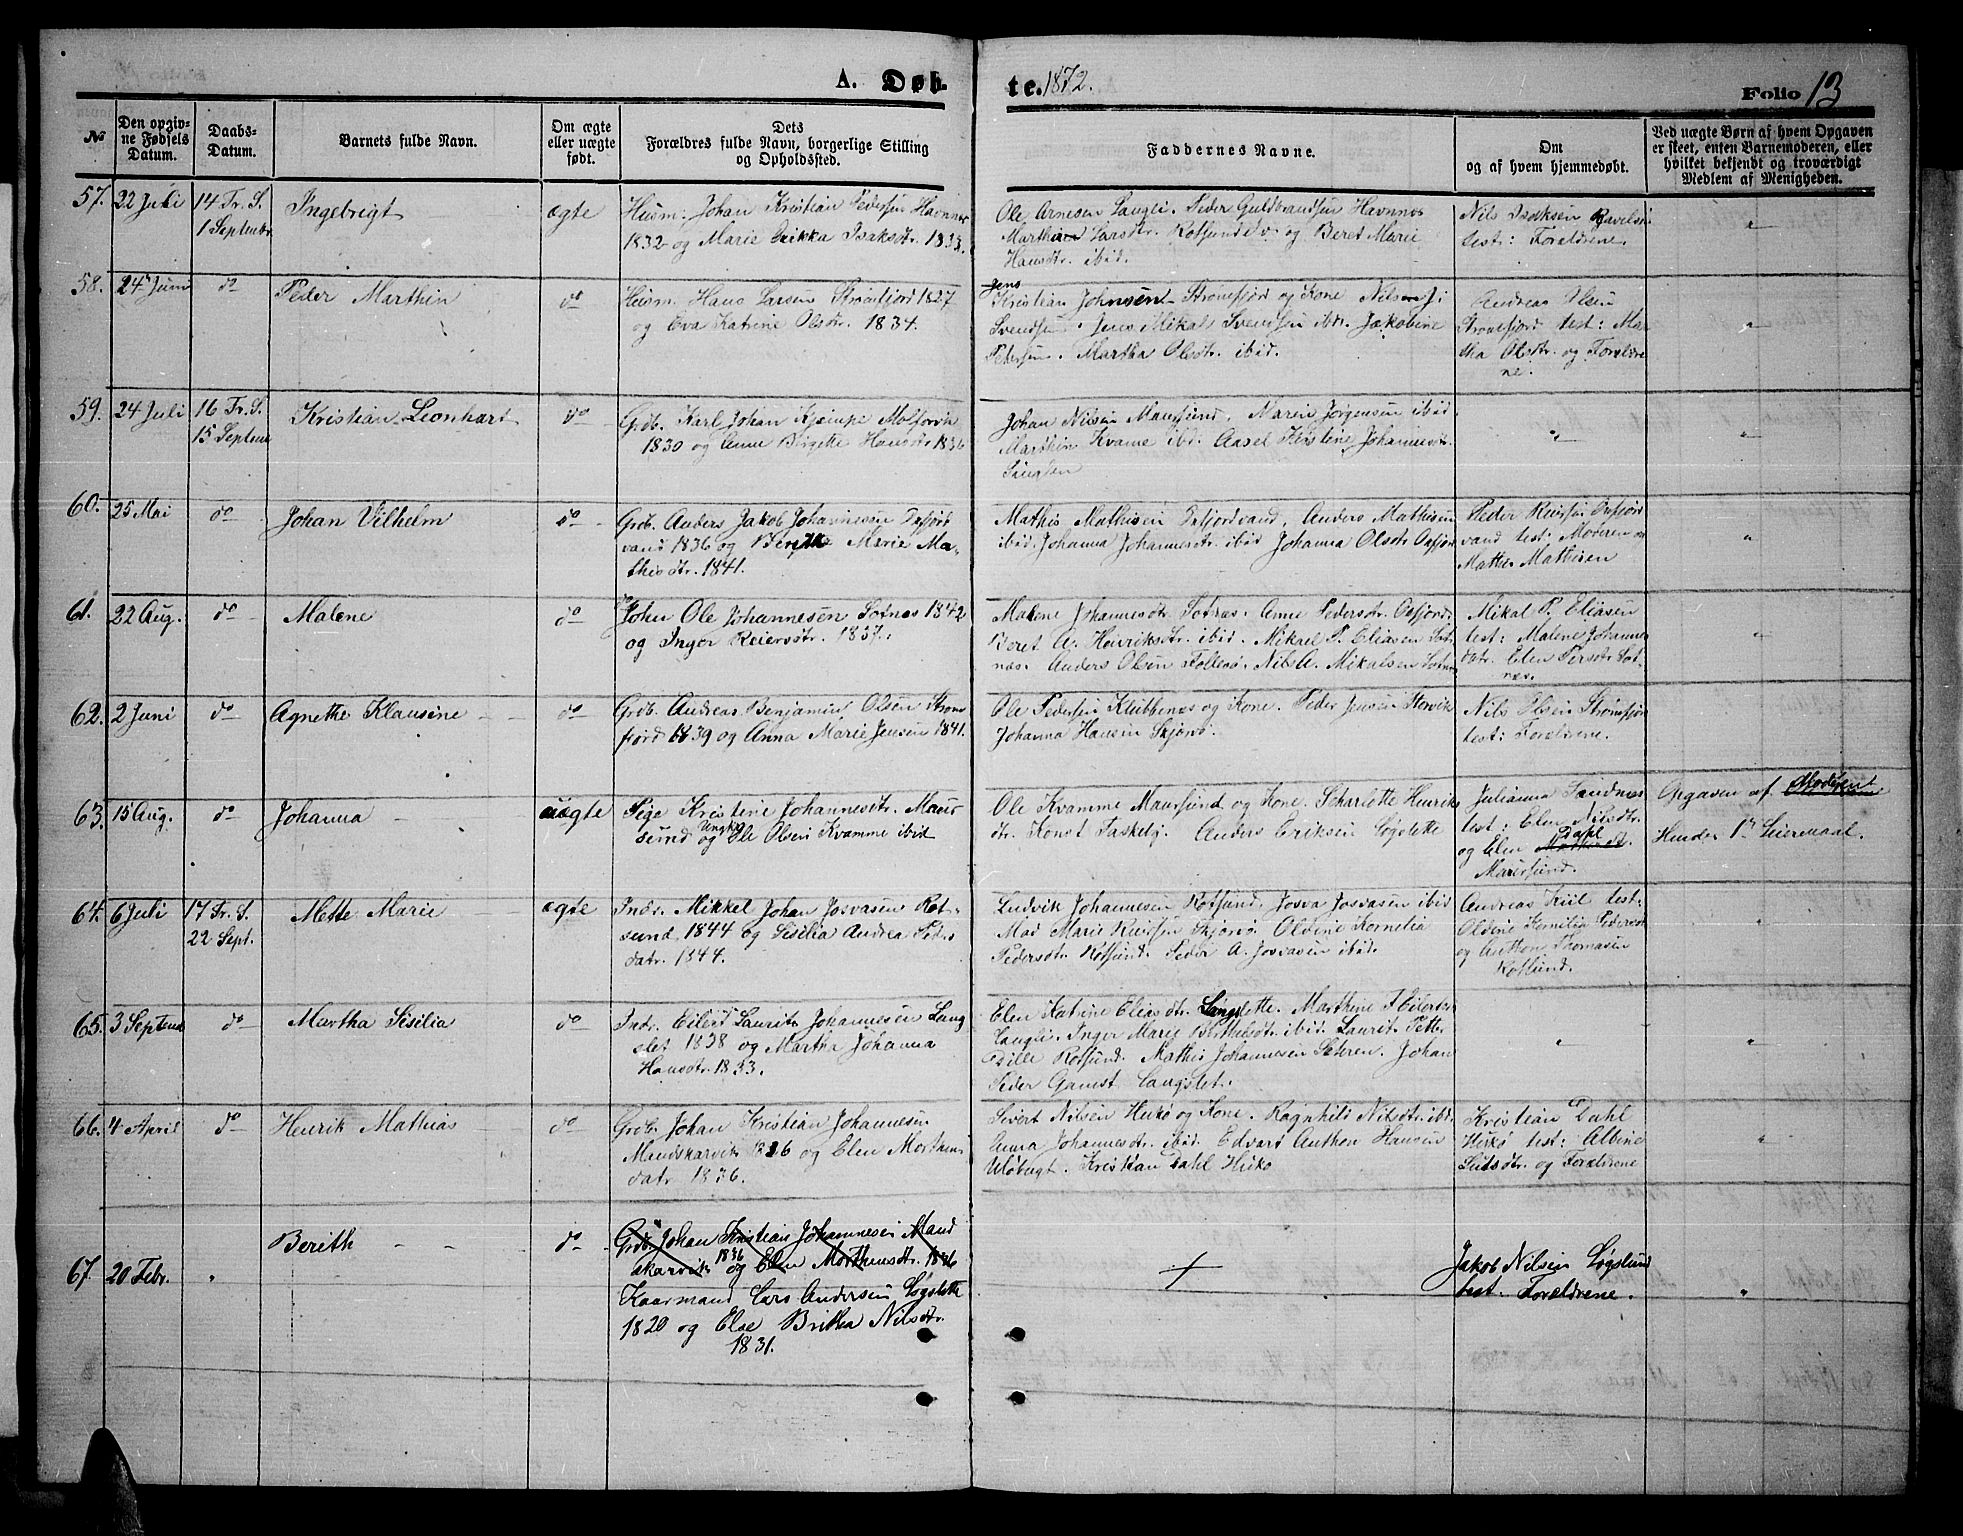 A. Døb-
te. 1872.
Folio 13
№
Den opgiv-
ne Fødsels
Datum.
Daabs-
Datum.
Barnets fulde Navn.
Om ægte
eller uægte
født.
Dets
Forældres fulde Navn, borgerlige Stilling
og Opholdssted.
Faddernes Navne.
Om
og af hvem hjemmedøbt.
Ved uægte Børn af hvem Opgaven
er skeet, enten Barnemoderen, eller
hvilket bekjendt og troværdigt
Medlem af Menigheden.
57. 22 Juli
14 Tr. S.
1 Septembr.
Ingebrigt
ægte
Husm. Johan Kristian Pedersen Havnnes
1832 og Marie Erikka Isaksdtr. 1833.
Ole Arnesen Langli. Peder Guldbrandsen Havnnes
Larsdtr. Rotsundelv. og Beret Marie
Hansdtr. ibid.
Nils Isaksen
test: Forældrene.
"
58. 24 Juni
do
Peder Marthin
do
Husm. Hans Larsen Strømfjord 1827
og Eva Katrine Olsdtr. 1834.
Jens
Kristian Johnsen Strømfjord og Kone
Svendsen. Jens Mikal Svendsen ibd. Jakobine
Petersen. Martha Olsdtr. ibid.
Andreas Olsen
Strømfjord test: Mar-
tha Olsdtr. og Forældre
ne.
"
59. 24 Juli
16 Tr. S.
15 Septemb
Kristian Leonhart
do
Grdb. Karl Johan Kjempe
1830 og Anne Birgitte Hansdtr 1836
Johan Nilsen Maursund. Maren Jørgensen ibid
Marthin Kvame ibd. Aasel Kirstine Johannesdtr.
"
"
60. 25 Mai
do
Johan Vilhelm
do
Grdb. Anders Jakob Johannesen Oxfjord
vand 1836 og Berith Marie Ma-
thisdtr. 1841.
Mathis Mathisen Oxfjordvand. Anders Mathisen
ibid. Johanna Johannesdtr. ibid Johanna Olsdtr Oxfjord
Peder Oxfjord
vand test: Moderen og
Mathis Mathisen
"
61. 22 Aug.
do
Malene
do
John Ole Johannesen Sotnæs 1842
og Inger Reiersdtr. 1837.
Malene Johannesdtr Sotnæs. Anne Pedersdtr. Oxfjord.
Beret A. Henriksdtr. ibid. Mikael P. Eliasen Sot
næs. Anders Olsen Follesø. Nils A. Mikalsen Sotnæs
Mikal P. Eliasen
test: Malene Johannes
datr. Elen Persdtr Sot-
næs.
"
62. 2 Juni
do
Agnethe Klausine
do
Grdb. Andreas Benjamin Olsen Strøm
fjord 1839 og Anna Marie Jensen 1841.
Ole Pedersen Klubbenæs og Kone. Peder Jensen Storvik
Johanna Hansen Skjervø.
Nils Olsen Strømfjor
test: Forældrene.
63. 15 Aug.
do
Johanna
uægte
Pige Kristine Johannesdtr. Maur
sund og Ungk. Ole Olsen Kvamme ibid
Ole Kvamme Maursund og Kone. Scharlotte Henriks
dtr. Konst. Taskeby. Anders Eriksen Løgslette
Julianna Sandnes
test: Elen Nilsdtr.
og Elen Dahl
Maursund.
Opgaven af Moderen
Hendes 1ste Leiermaal.
64. 6 Juli
17 Tr. S.
22 Sept.
Mette Marie
ægte
Indr. Mikkel Johan Josvasen Rot-
sund 1844 og Sisilia Andrea Peders
datr. 1844.
Ludvik Johannesen Rotsund. Josva Josvasen ibid
Mad Marie Skjervø. Oldine Kornelia
Pedersdtr. Rotsund. Peder A. Josvasen ibid.
Andreas Kiil test:
Oldine Kornilia Pedersdt
og Anthon Thomasen
Rotsund.
"
65. 3 Septemb
do
Martha Sisilia
do
Indr. Eilert Laurits Johannesen Lang
slet 1838 og Martha Johanna
Hansdtr. 1833.
Elen Katrine Eliasdtr. Langslette. Marthine
Langli. Inger Marie ibid. Laurits Petter
Dille Rotsund. Mathis Johannesen Sæteren. Johan
Peder Gamst Langslet.
"
"
66. 4 April
do
Henrik Mathias
do
Grdb. Johan Kristian Johannesen
Mandskarvik 1826 og Elen Mortens
datr 1836.
Sivert Nilsen Hukø og Kone. Ragnhild Nilsdtr. ibd.
Anna Johannesdtr. ibid. Edvard Anthon Hansen
Uløbugt. Kristian Dahl Hukø
Kristian Dahl
Hukø test: Albine
og Forældrene
"
67. 20 Febr.
"
Berith
do
Grdb. Johan Kristian Johannesen Mand
skarvik 1836 og Elen Morthensdtr. 1836
Kaarmand Lars Andersen Løgslett
1820 og Else Britha Nilsdtr.
1831.
+
Jakob Nilsen Løgslund
test. Forældrene.
"